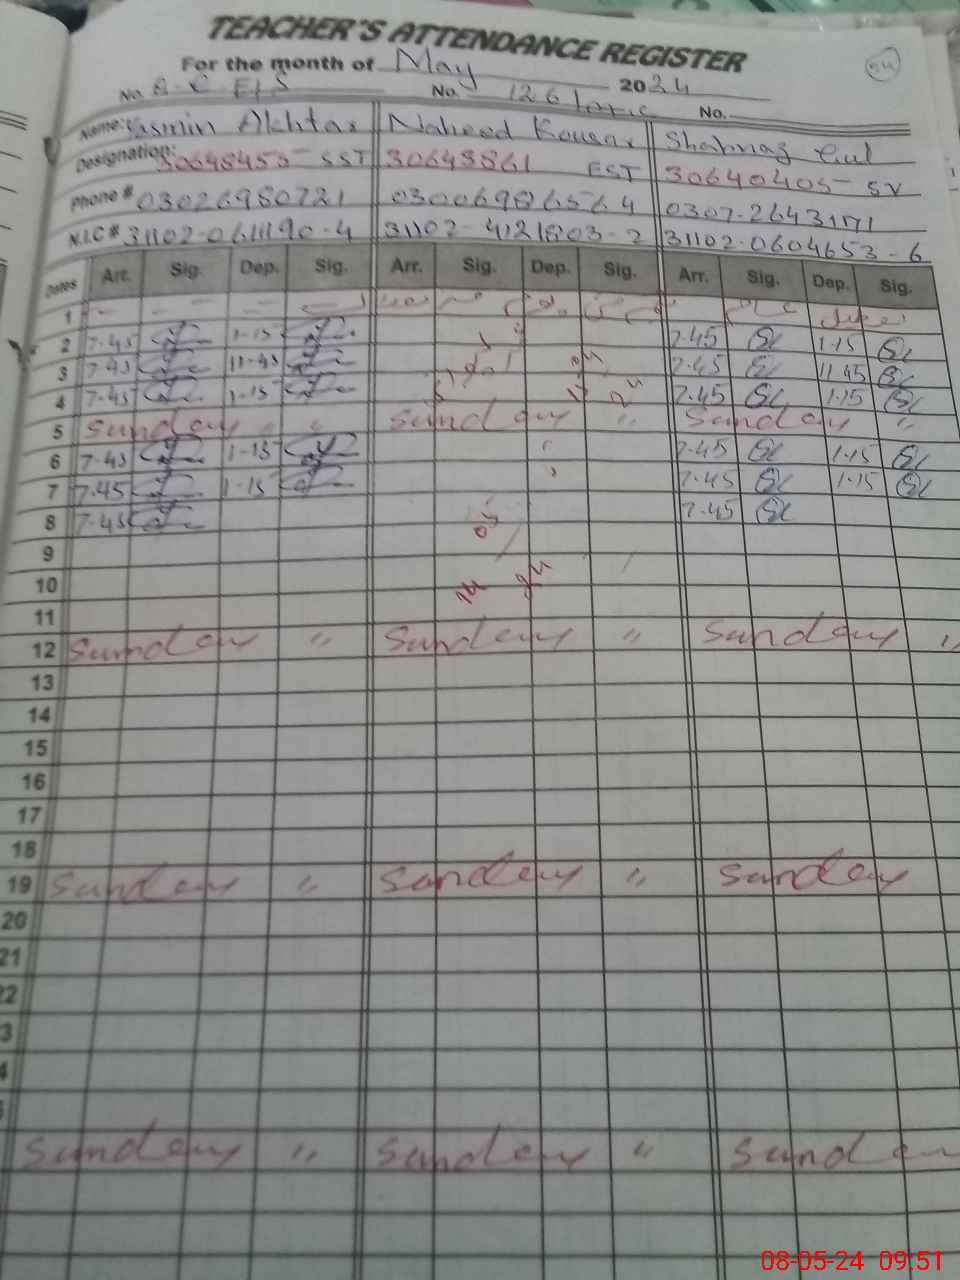 TEACHER'S ATTENDANCE REGISTER
For the month of May 2024
No. No. 126 No.
Name: Yasmin Akhtar Naheed Kousar Shahnaz Gul
Designation: 30648455 SST 30643861 EST 30640405 SV
Phone # 03026980721 03006986564 0307-2643171
N.I.C # 31102-0611190-4 31102-4121803-2 31102-0604653-6
Dates Arr. Sig. Dep. Sig. Arr. Sig. Dep. Sig. Arr. Sig. Dep. Sig.
1
2 7.45 1-15 7.45 1.15
3 7.45 11-45 7.45 11.45
4 7.45 1-15 7.45 1.15
5 Sunday " Sunday " Sunday "
6 7.45 1-15 7.45 1.15
7 7.45 1-15 7.45 1.15
8 7.45 7.45
9
10
11
12 Sunday " Sunday " Sunday "
13
14
15
16
17
18
19 Sunday " Sunday " Sunday
20
21
22
3
4
Sunday " Sunday " Sunday
08-05-24 09:51